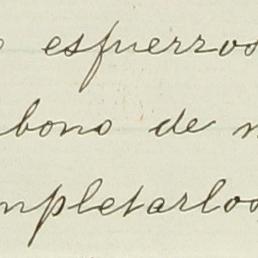 esfuerzos
bono de
mpletarlos